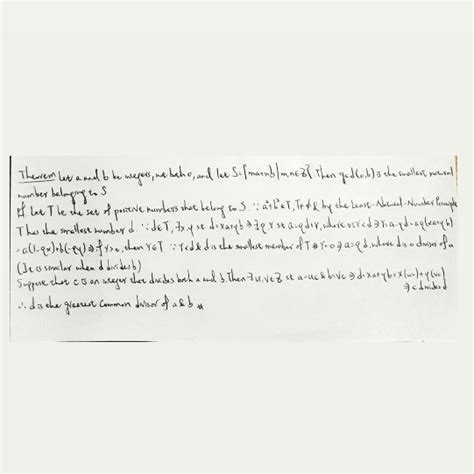 Theorem Let a and b be integers, not both 0, and let S={ma+nb|m,n∈Z}. Then gcd(a,b) is the smallest natural
number belonging to S
Pf Let T be the set of positive numbers that belong to S ∵ a²+b²∈T, T≠∅, by the Least-Natural-Number Principle
T has the smallest number d. ∵ d∈T, ∃x,y st d=xa+yb ⇒ ∃q,r st a=qd+r, where 0≤r<d ⇒ r=a-qd=a-q(xa+yb)
=a(1-qx)+b(-qy) ⇒ if r>0, then r∈T ∵ r<d & d is the smallest member of T ⇒ r=0 ⇒ a=qd, where d is a divisor of a
(It is similar when d divides b)
Suppose that c is an integer that divides both a and b. Then ∃u,v∈Z st a=uc & b=vc ⇒ d=xa+yb=x(uc)+y(vc)
⇒ c divides d
∴ d is the greatest common divisor of a & b